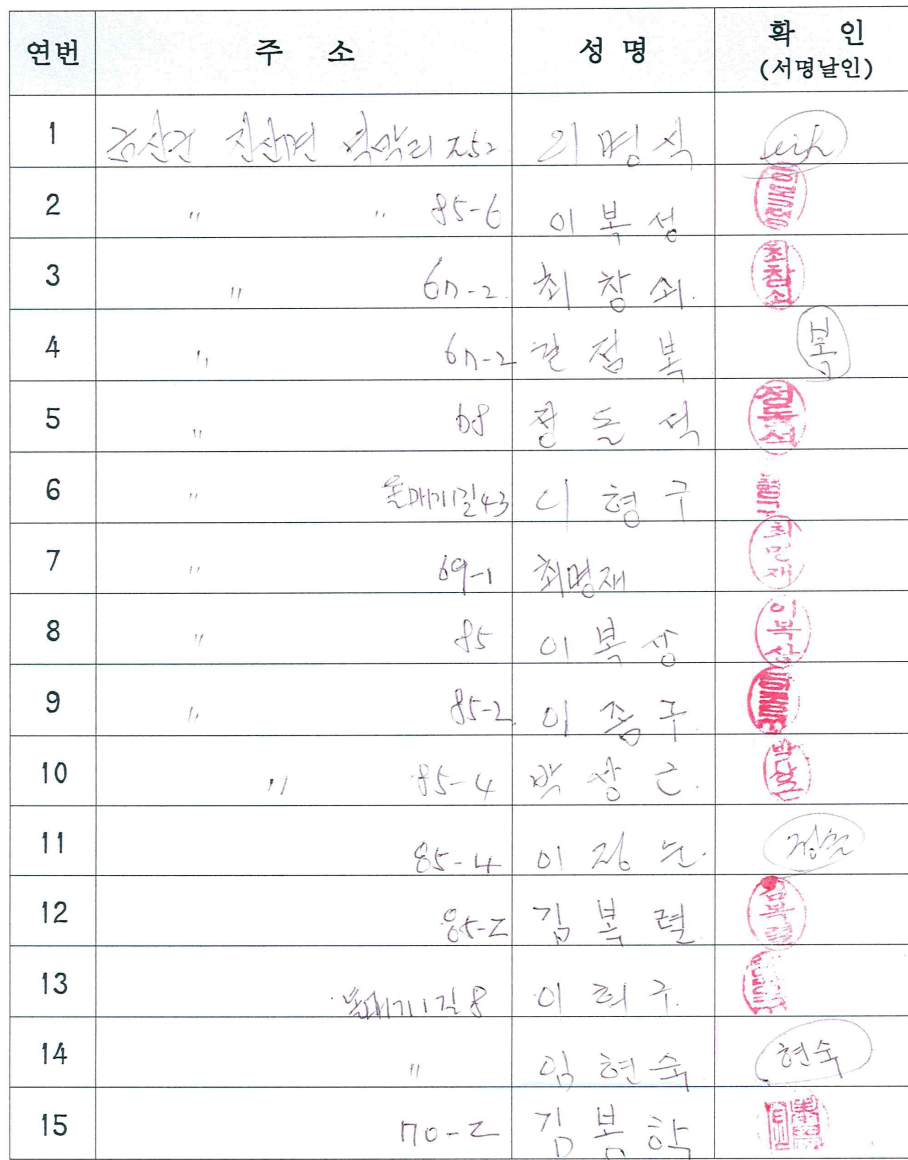 연번 주 소 성 명 확 인
(서명날인)
1 금산군 진산면 막리 752 명식
2 〃 〃 85-6 이복성
3 〃 67-2. 최창쇠. 최창쇠
4 〃 67-2 점복 복
5 〃 68 정돈석 정돈석
6 〃 43 이형구
7 〃 69-1 최명재
8 〃 85 이복상 이복상
9 〃 85-2 이종구
10 〃 85-4 박상근. 박상근
11 85-4 이정순. 정순
12 85-2 김복렬
13 길8 이희구.
14 〃 임현숙 현숙
15 70-2 김봉학